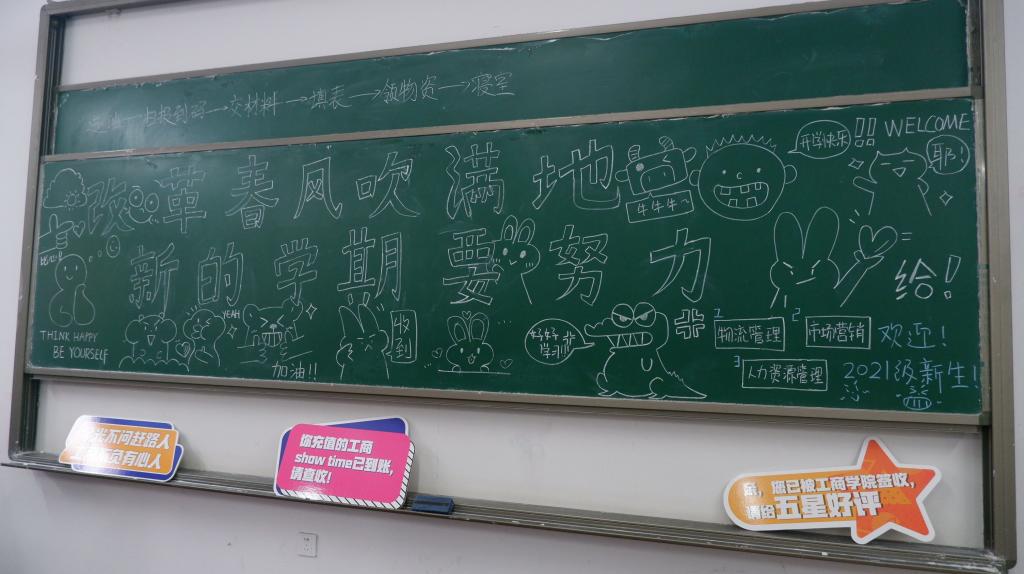 交材料→填表→领物资→寝室
改革春风吹满地
新的学期要努力
牛牛牛~
开学快乐
!! WELCOME
耶!
比心!!
THINK HAPPY
BE YOURSELF
YEAH
加油!!
收到
好好学习!!!
给!
1 物流管理
2 市场营销
3 人力资源管理
欢迎!
2021级新生!
不问赶路人
负有心人
你充值的工商
show time已到账,
请查收!
亲, 您已被工商学院签收,
请给五星好评